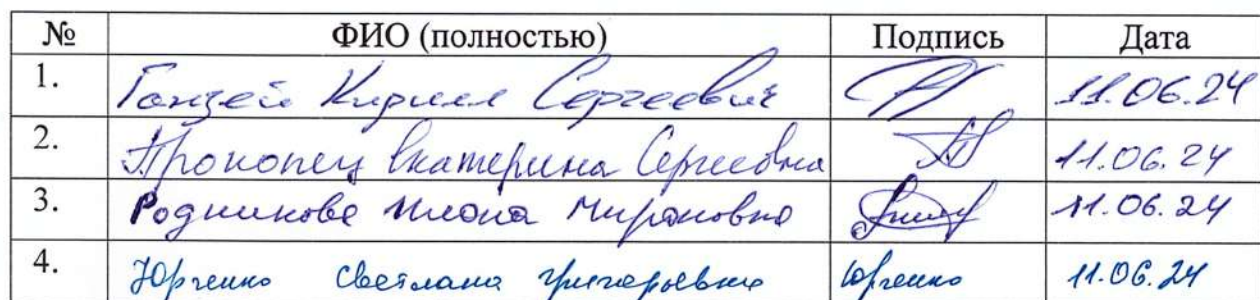 № ФИО (полностью) Подпись Дата
1. Ганзей Кирилл Сергеевич 11.06.24
2. Прокопец Екатерина Сергеевна 11.06.24
3. Родникова Илона Мироновна 11.06.24
4. Юрченко Светлана Григорьевна Юрченко 11.06.24